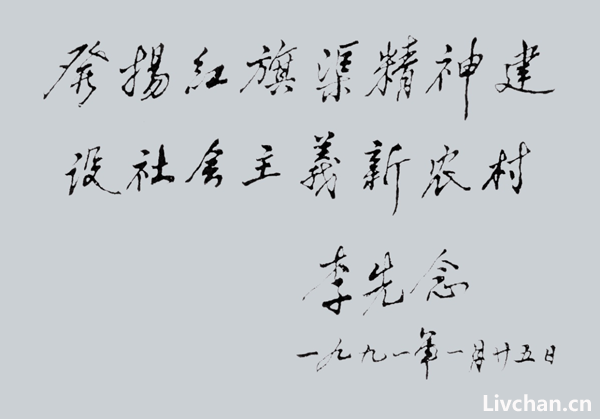 發揚紅旗渠精神建
设社会主義新农村
李先念
一九九一年一月廿五日
Livchan.cn